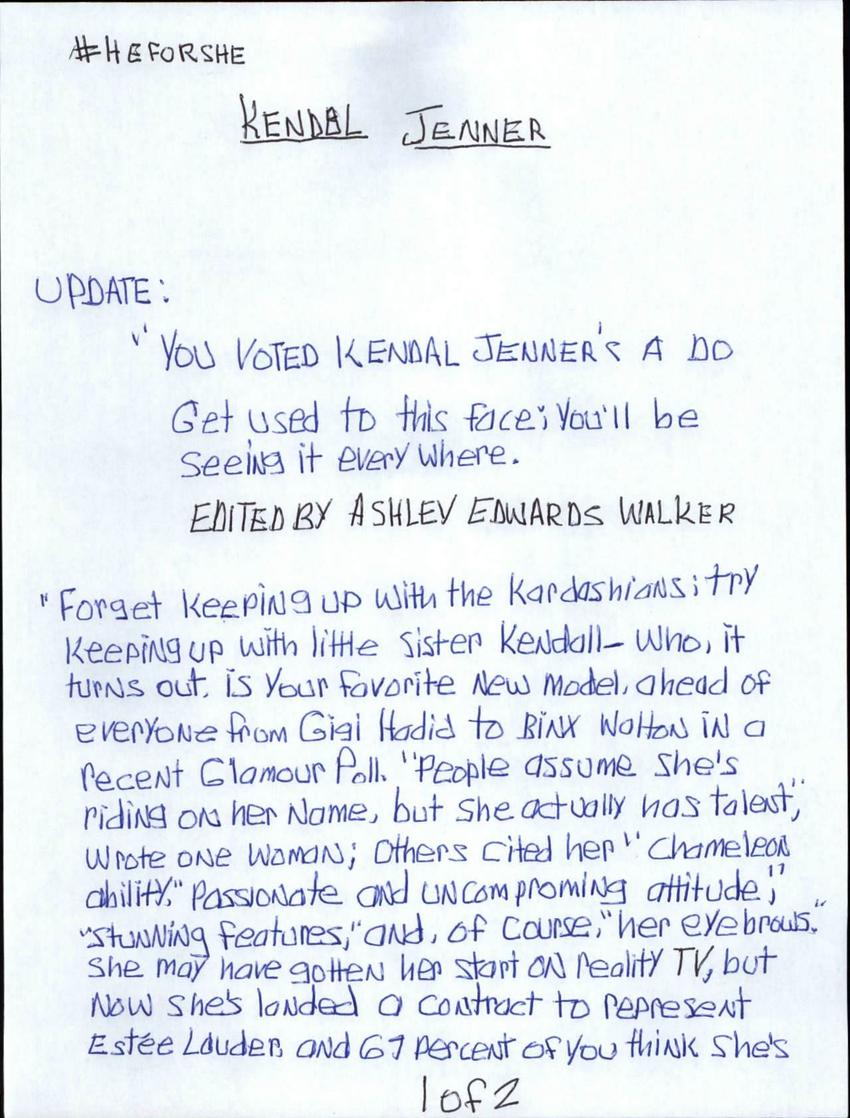 #HEFORSHE
KENDAL JENNER
UPDATE:
"YOU VOTED KENDAL JENNER'S A DO
Get used to this face; you'll be
seeing it every where.
EDITED BY ASHLEY EDWARDS WALKER
"Forget keeping up with the Kardashians; try
keeping up with little sister Kendall- who, it
turns out, is your favorite new model, ahead of
everyone from Gigi Hadid to Binx Walton in a
recent Glamour Poll. "People assume she's
riding on her name, but she actually has talent",
wrote one woman; others cited her "chameleon
ability," "passionate and uncomproming attitude,"
"stunning features," and, of course, "her eyebrows."
She may have gotten her start on reality TV, but
now she's landed a contract to represent
Estée Lauder, and 67 percent of you think she's
1 of 2